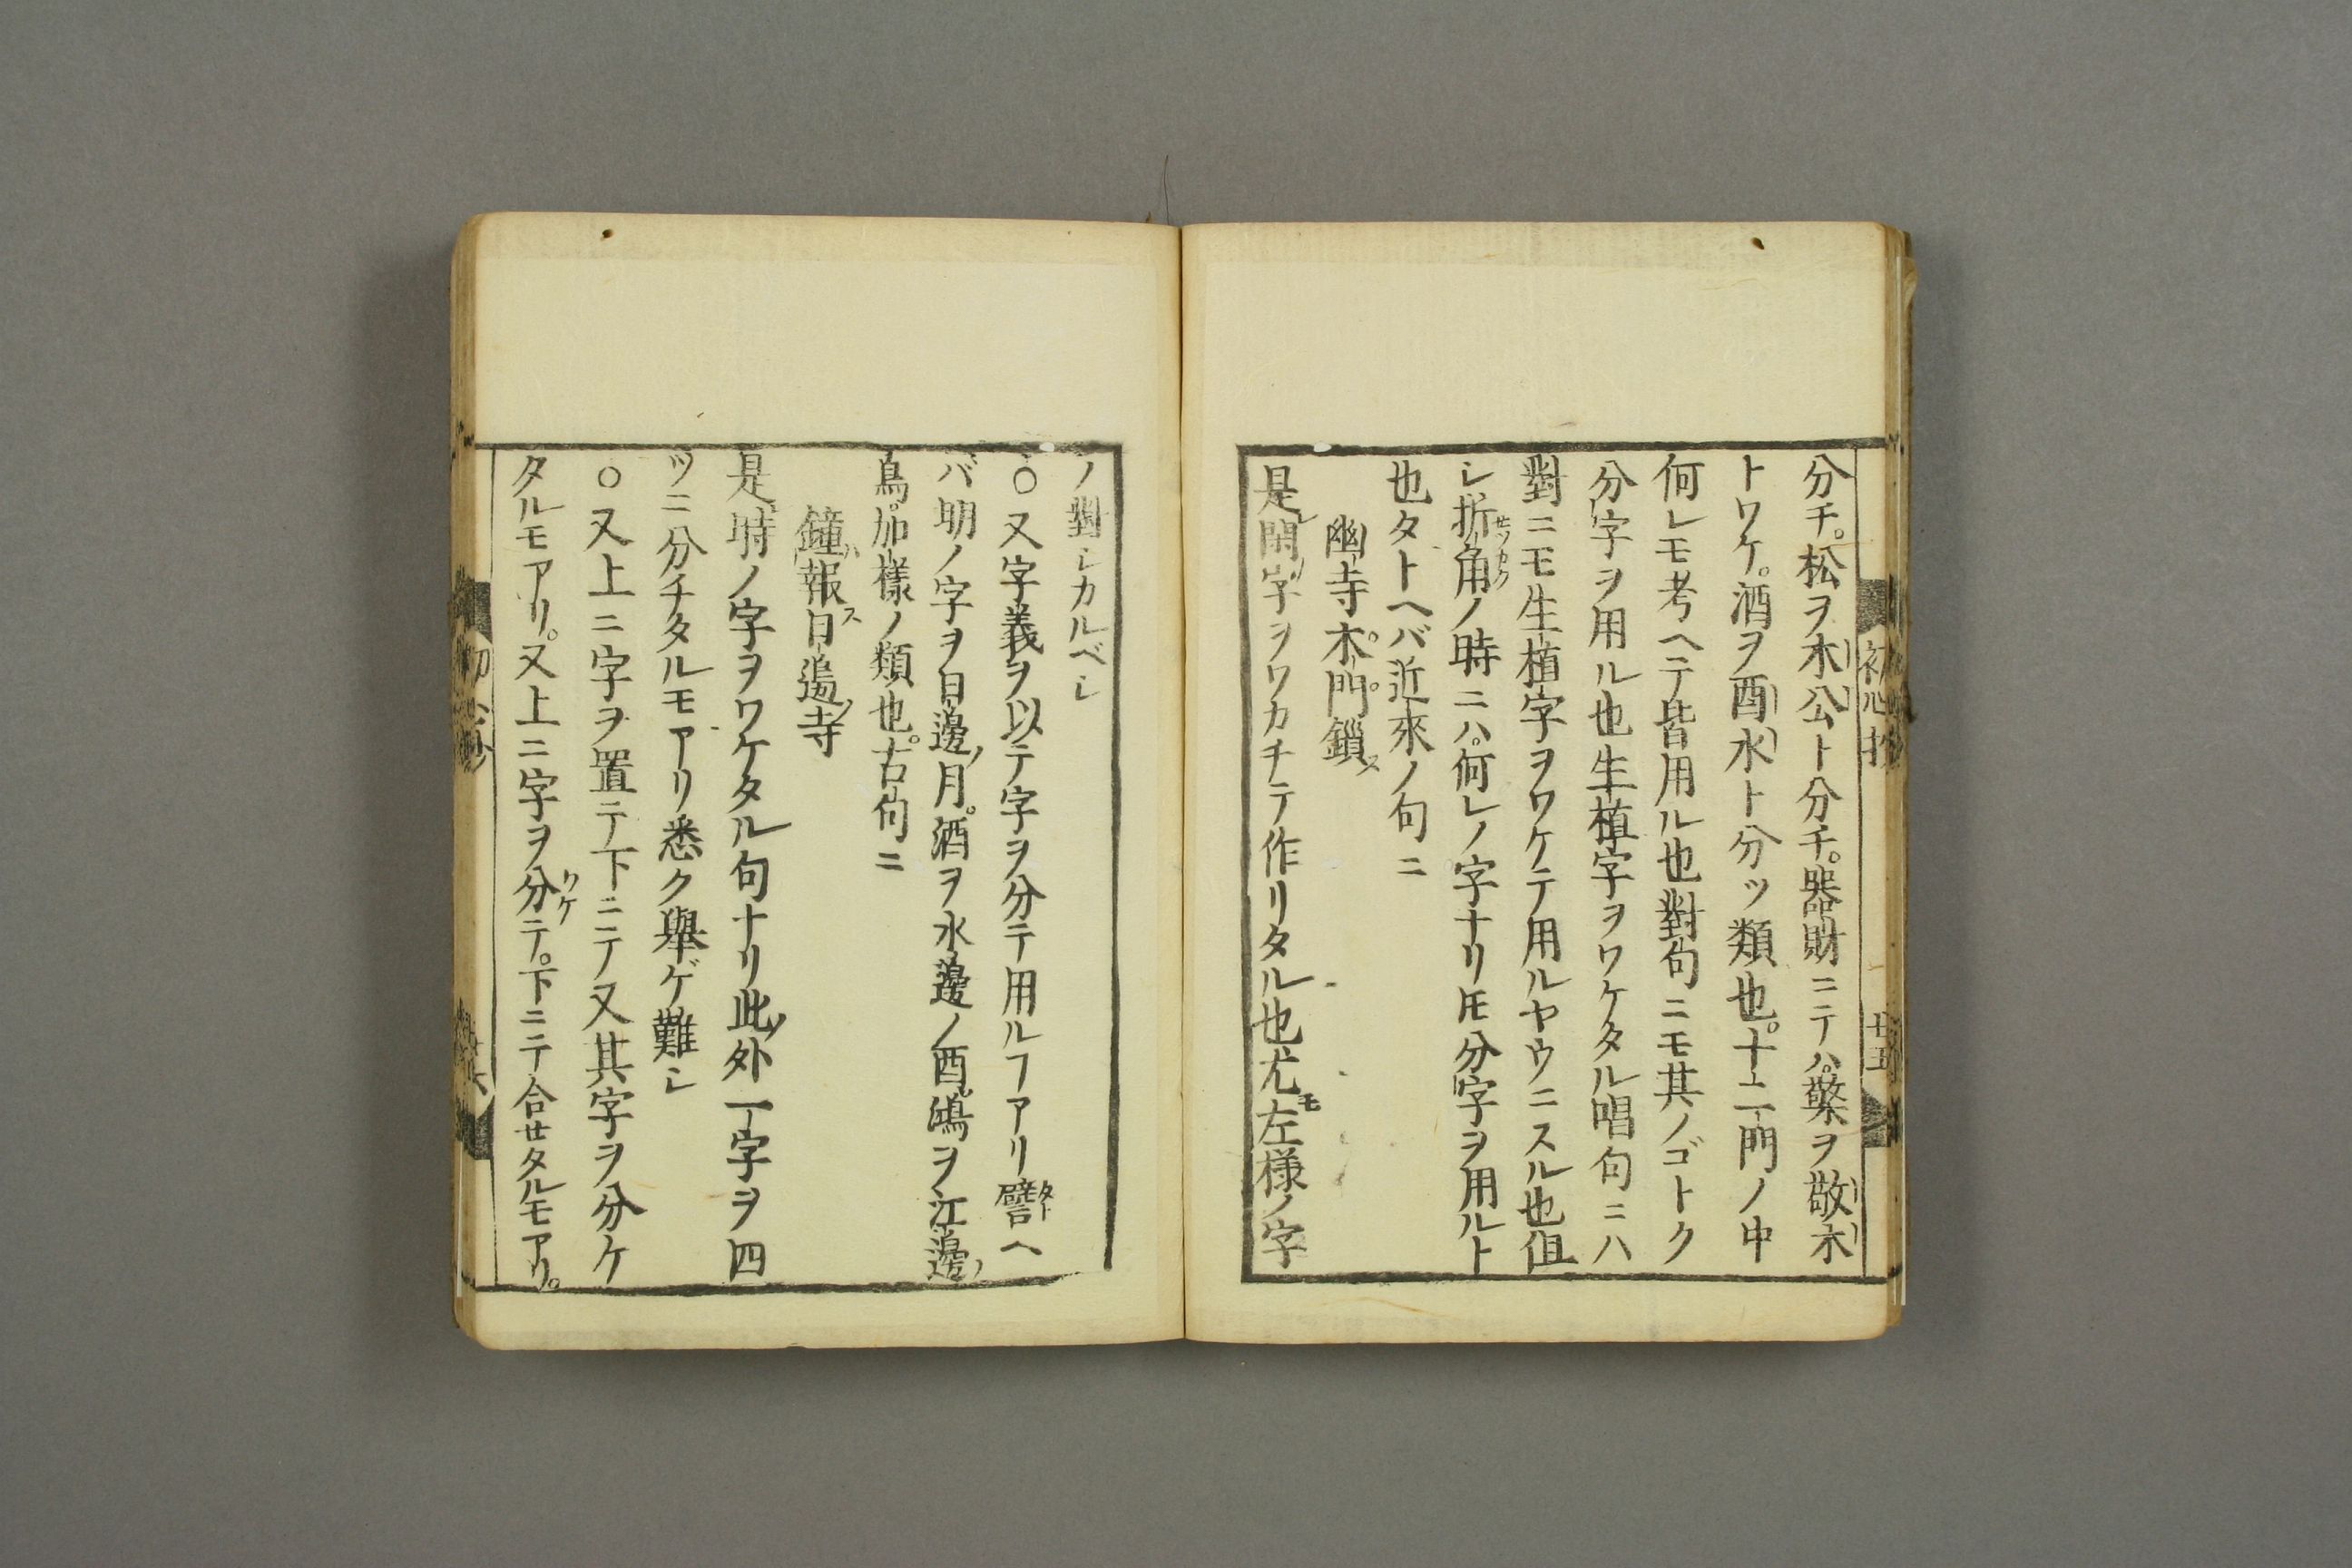 分チ。松ヲ木公ト分チ。器財ニテハ。檠ヲ敬木
トワケ。酒ヲ酉水ト分ツ類也。十二門ノ中
何レモ考ヘテ皆用ル也對句ニモ其ノゴトク
分字ヲ用ル也生植字ヲワケタル唱句ニハ
對ニモ生植字ヲワケテ用ルヤウニスル也但
シ折角ノ時ニハ。何レノ字ナリ𪜈分字ヲ用ルト
也タトヘバ近來ノ句ニ
幽寺木。門。鎖ス
是レ閑ノ字ヲワカチテ作リタル也尤モ左様ノ字
ノ對シカルベシ
○又字義ヲ以テ字ヲ分テ用ルヿアリ譬ヘ
バ明ノ字ヲ日邊ノ月。酒ヲ水邊ノ酉。鴻ヲ江邊ノ
鳥。加樣ノ類也。古句ニ
鐘ハ報ス日邊ノ寺
是時ノ字ヲワケタル句ナリ此ノ外一字ヲ四
ツニ分チタルモアリ悉ク舉ゲ難シ
○又上ニ字ヲ置テ下ニテ又其字ヲ分ケ
タルモアリ。又上ニ字ヲ分テ。下ニテ合セタルモアリ。